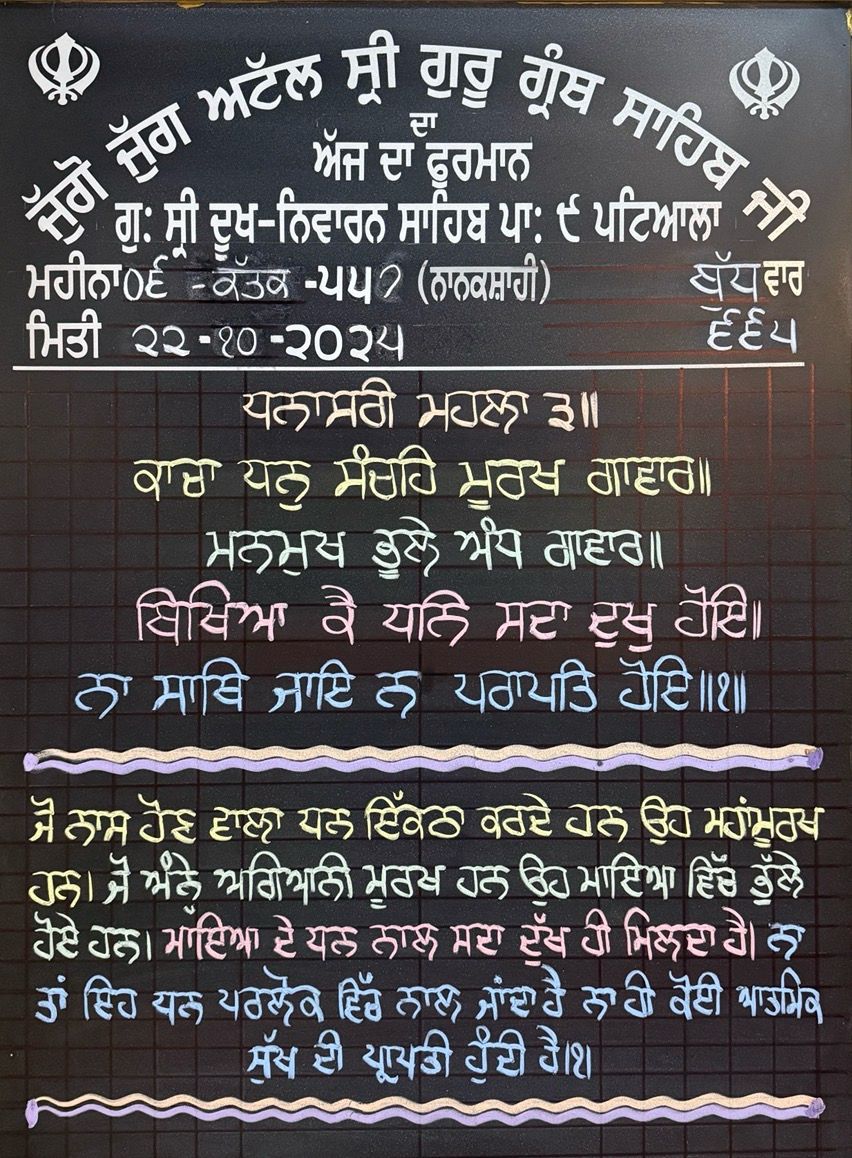 ਜੁੱਗੋ ਜੁੱਗ ਅਟੱਲ ਸ੍ਰੀ ਗੁਰੂ ਗ੍ਰੰਥ ਸਾਹਿਬ ਜੀ
ਦਾ
ਅੱਜ ਦਾ ਫੁਰਮਾਨ
ਗੁ: ਸ੍ਰੀ ਦੂਖ-ਨਿਵਾਰਨ ਸਾਹਿਬ ਪਾ: ੯ ਪਟਿਆਲਾ
ਮਹੀਨਾ ੦੬ - ਕੱਤਕ -੫੫੭ (ਨਾਨਕਸ਼ਾਹੀ) ਬੁੱਧ ਵਾਰ
ਮਿਤੀ ੨੨-੧੦-੨੦੨੫ ੬੬੫
ਧਨਾਸਰੀ ਮਹਲਾ ੩॥
ਕਾਚਾ ਧਨੁ ਸੰਚਹਿ ਮੂਰਖ ਗਾਵਾਰ॥
ਮਨਮੁਖ ਭੂਲੇ ਅੰਧ ਗਾਵਾਰ॥
ਬਿਖਿਆ ਕੈ ਧਨਿ ਸਦਾ ਦੁਖੁ ਹੋਇ॥
ਨਾ ਸਾਥਿ ਜਾਇ ਨ ਪਰਾਪਤਿ ਹੋਇ॥੧॥
ਜੋ ਨਾਸ ਹੋਣ ਵਾਲਾ ਧਨ ਇੱਕਠਾ ਕਰਦੇ ਹਨ ਉਹ ਮਹਾਂਮੂਰਖ
ਹਨ। ਜੋ ਅੰਨੇ੍ ਅਗਿਆਨੀ ਮੂਰਖ ਹਨ ਉਹ ਮਾਇਆ ਵਿੱਚ ਭੁੱਲੇ
ਹੋਏ ਹਨ। ਮਾਇਆ ਦੇ ਧਨ ਨਾਲ ਸਦਾ ਦੁੱਖ ਹੀ ਮਿਲਦਾ ਹੈ। ਨਾ
ਤਾਂ ਇਹ ਧਨ ਪਰਲੋਕ ਵਿੱਚ ਨਾਲ ਜਾਂਦਾ ਹੈ ਨਾ ਹੀ ਕੋਈ ਆਤਮਿਕ
ਸੁੱਖ ਦੀ ਪ੍ਰਾਪਤੀ ਹੁੰਦੀ ਹੈ।੧।